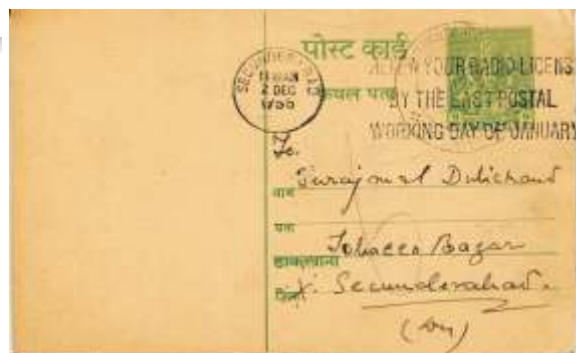 पोस्ट कार्ड
केवल पता
SECUNDERABAD
2 DEC
RENEW YOUR RADIO LICENS
BY THE LAST POSTAL
WORKING DAY OF JANUARY
To.
Surajmal Dulichand
नाम
पता
Tobacco Bazar
डाकखाना
जिला
Secunderabad.
(Dn)